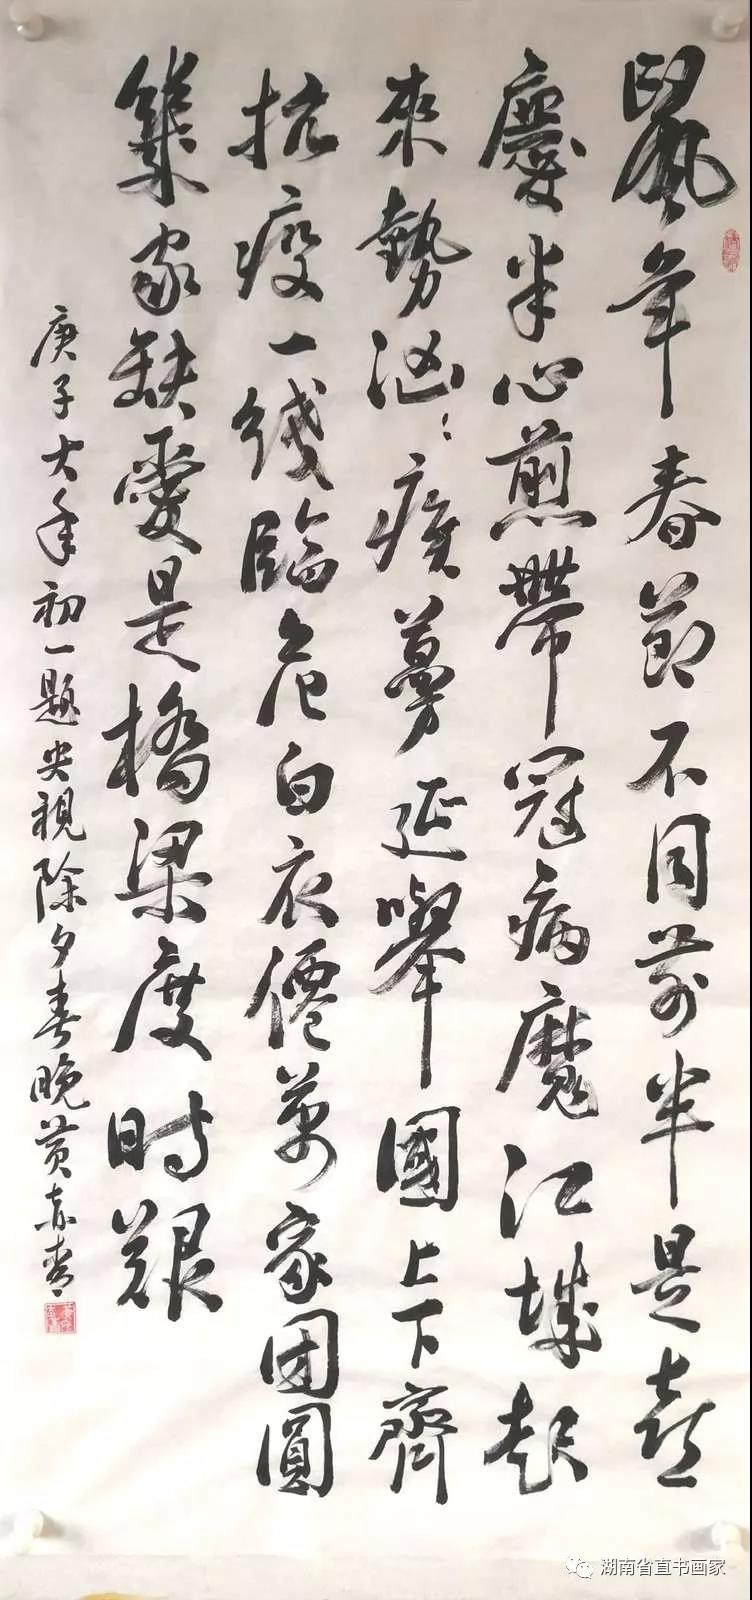 鼠年春節不同前半是喜
慶半心煎帶冠病魔江城起
來勢汹:疾蔓延舉國上下齊
抗疫一綫臨危白衣僊萬家团圓
幾家缺愛是橋梁度時艱
庚子大年初一題央視除夕春晚黄
湖南省直书画家